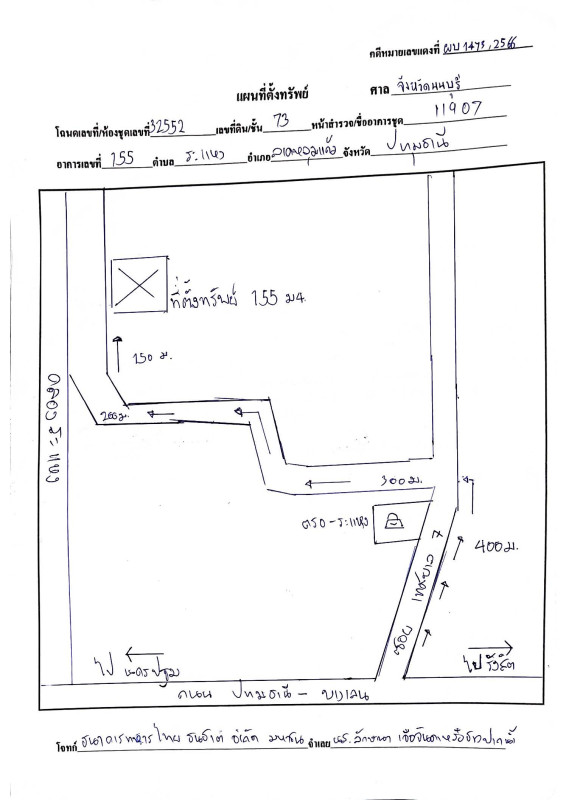 คดีหมายเลขแดงที่ ผบ 1473, 2566
แผนที่ตั้งทรัพย์ ศาล จังหวัดนนทบุรี
โฉนดเลขที่/ห้องชุดเลขที่ 32552 เลขที่ดิน/ชั้น 73 หน้าสำรวจ/ชื่ออาคารชุด 11907
อาคารเลขที่ 155 ตำบล ระแหง อำเภอ ลาดหลุมแก้ว จังหวัด ปทุมธานี
ที่ตั้งทรัพย์ 155 ม4.
150 ม.
200 ม.
คลองระแหง
300 ม.
ตรอ-ระแหง
400 ม.
ซอย เทศบาล 7
ไป นครปฐม
ไป รังสิต
ถนน ปทุมธานี - บางเลน
โจทก์ ธนาคารทหารไทย ธนชาต จำกัด มหาชน จำเลย นส. ลักษณา